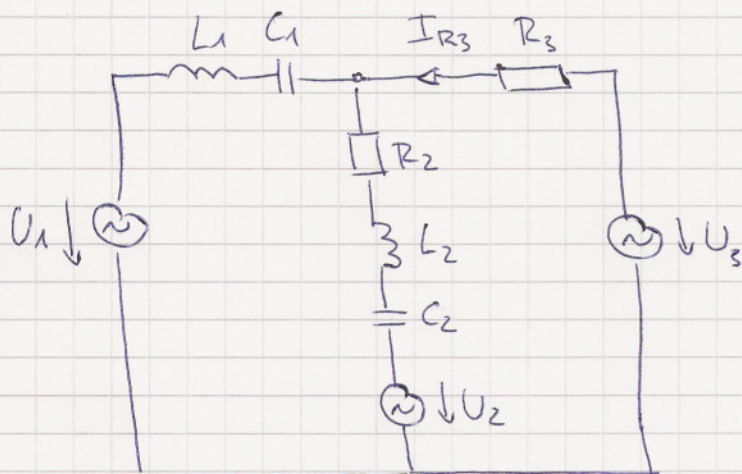 L1 C1 IR3 R3
R2
U1
L2
U3
C2
U2